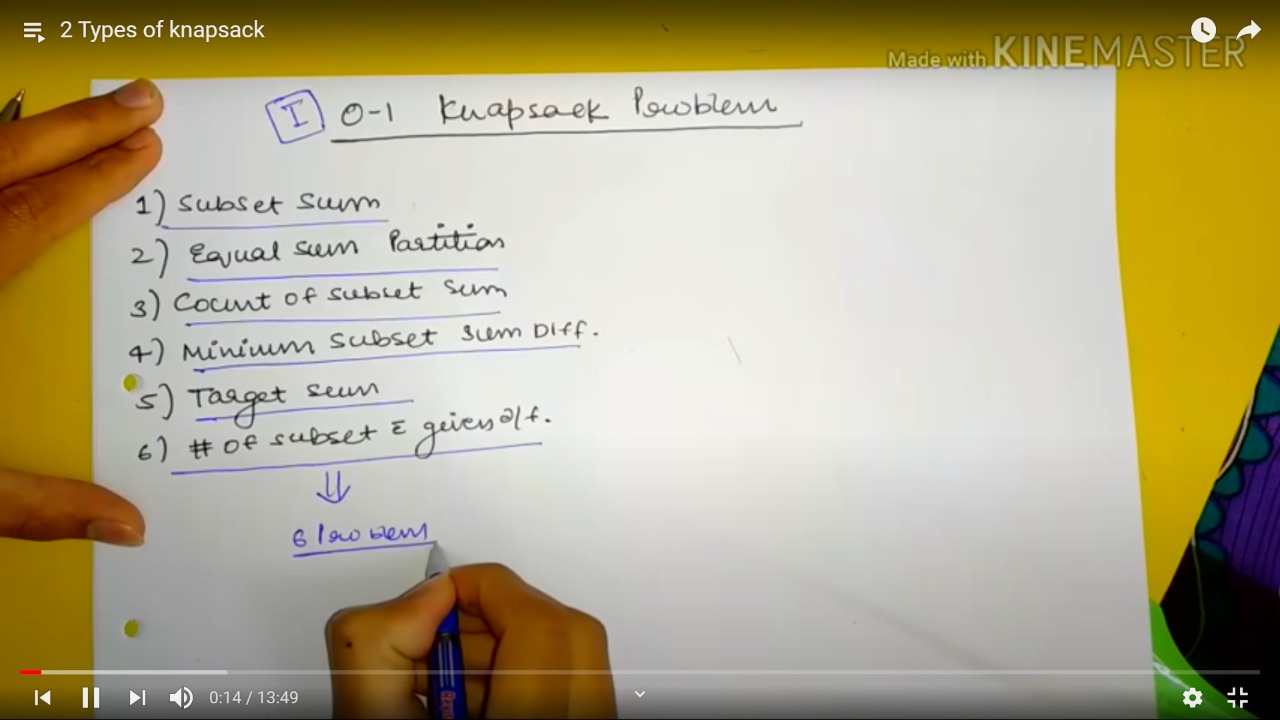 2 Types of knapsack
Made with KINEMASTER
I 0-1 Knapsack Problem
1) Subset Sum
2) Equal Sum Partition
3) Count of Subset Sum
4) Minimum Subset Sum Diff.
5) Target Sum
6) # of subset given diff.
6 Problem
0:14 / 13:49